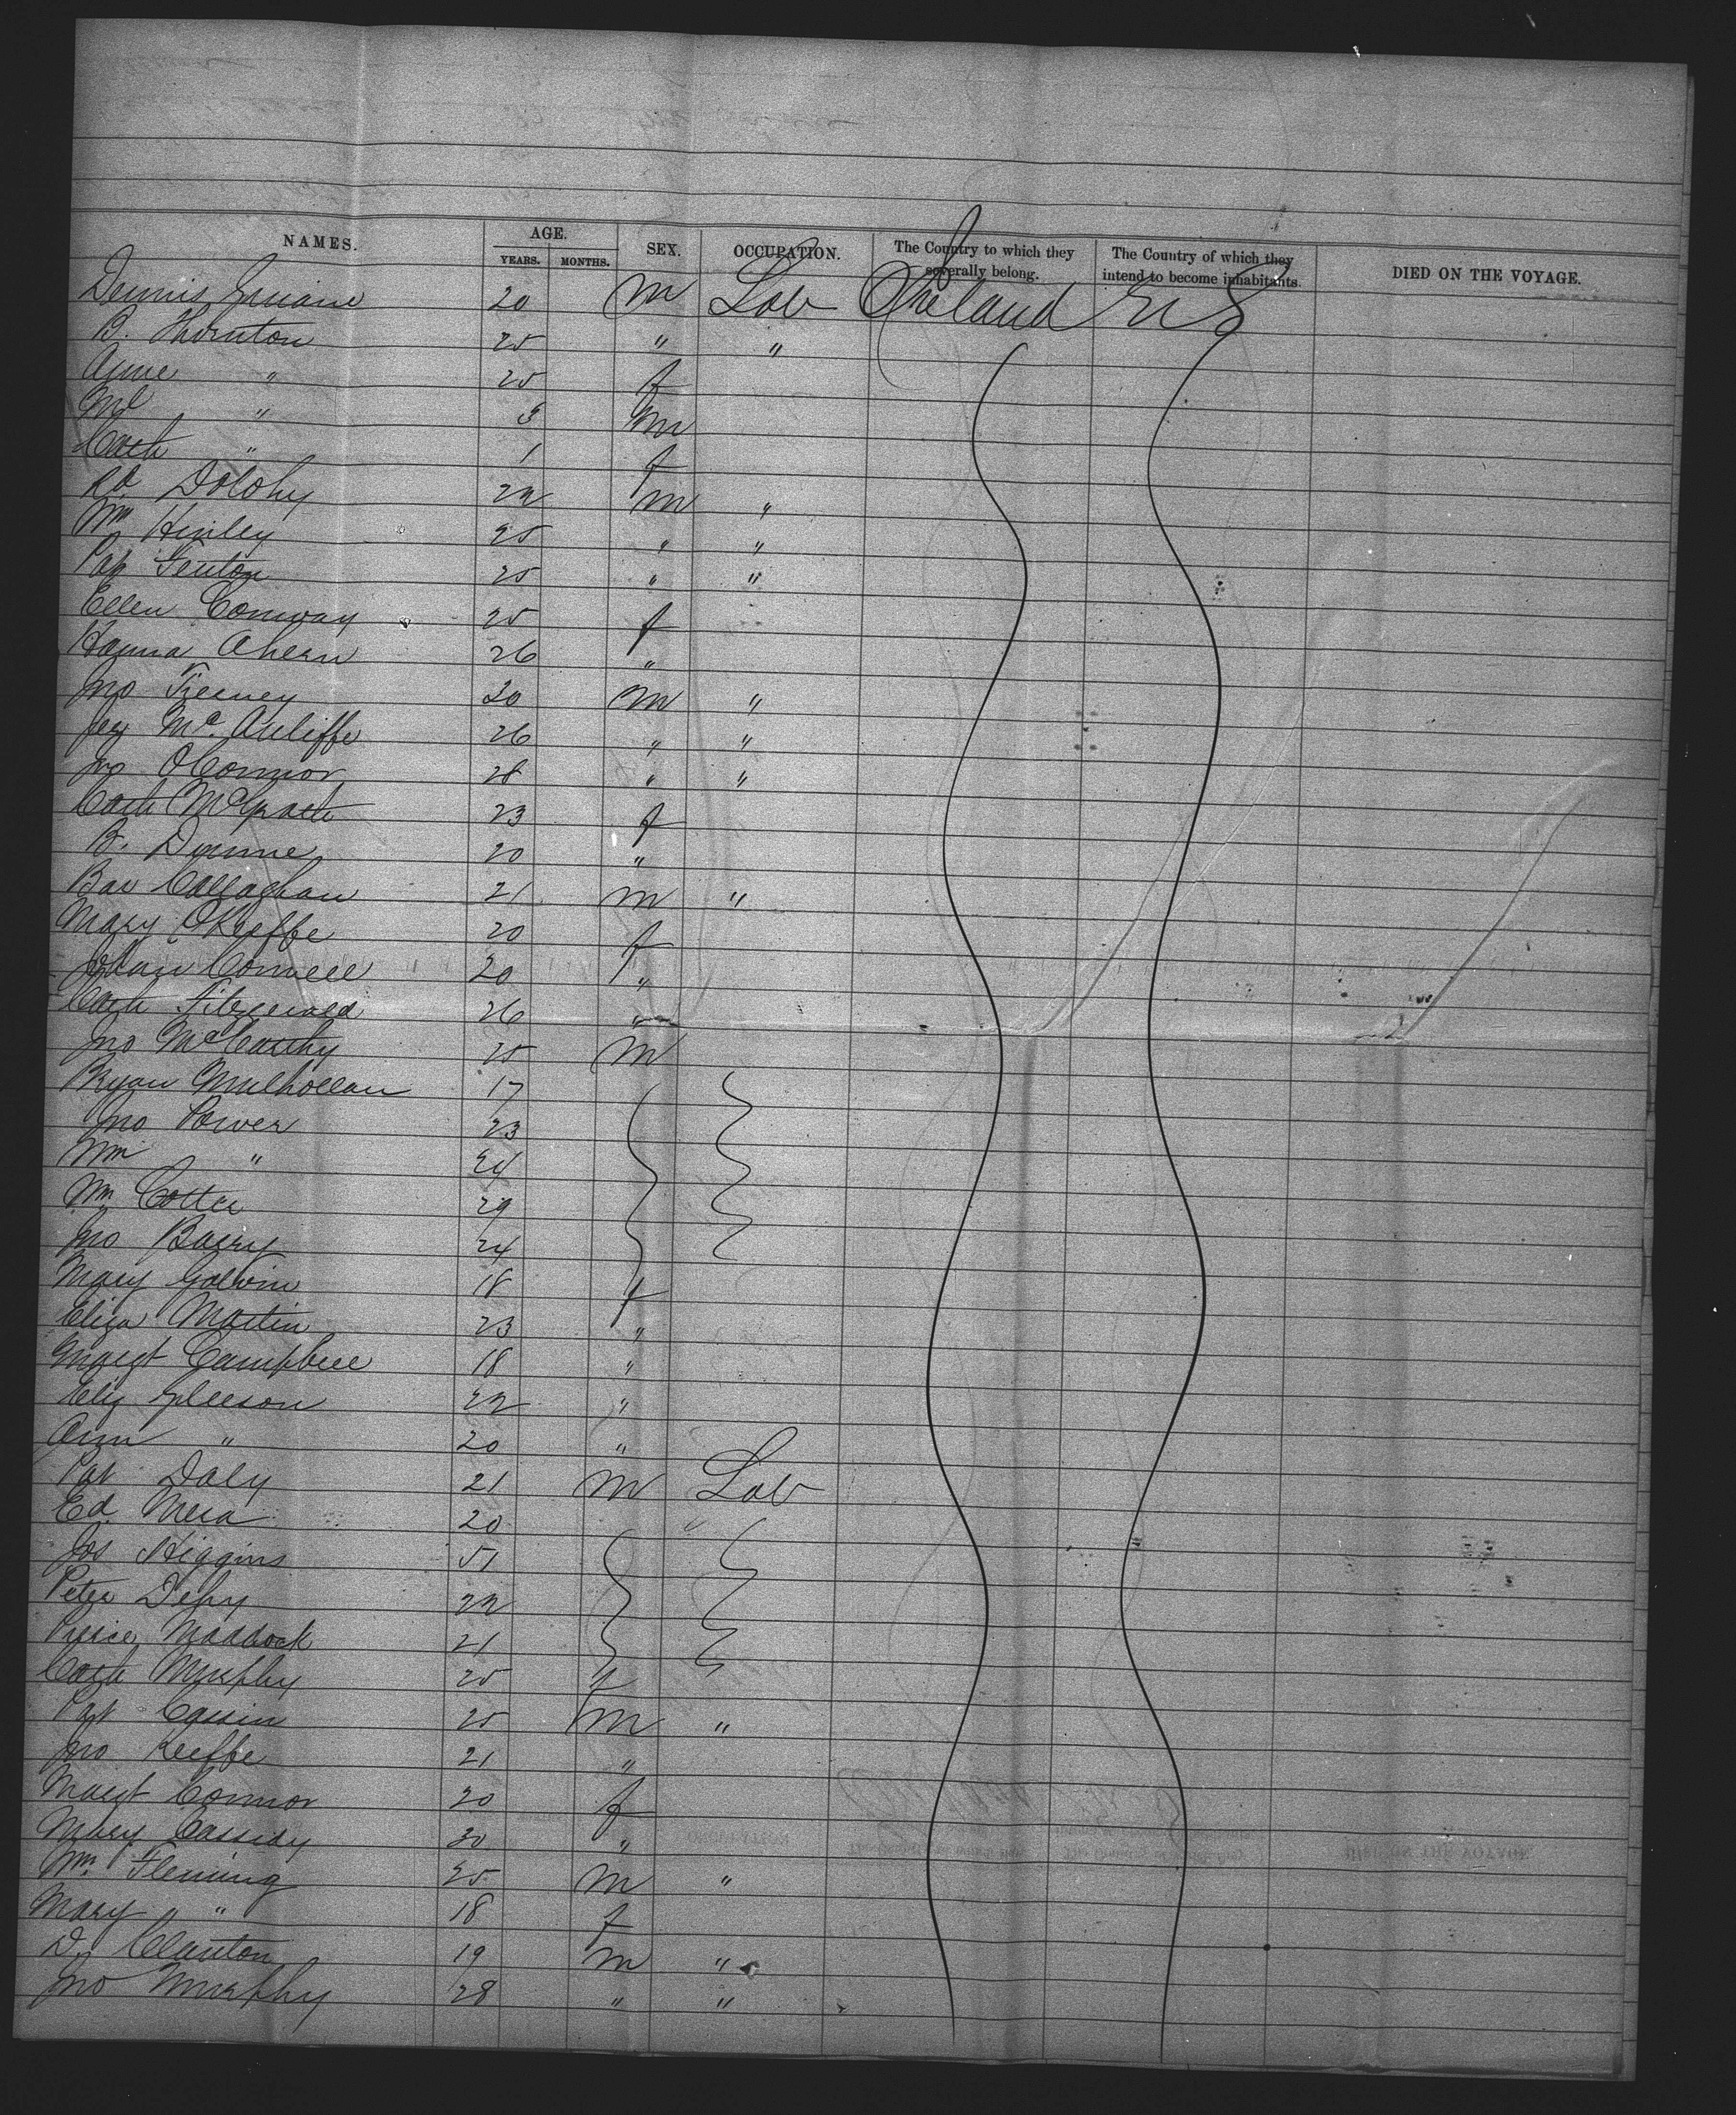 NAMES. AGE. SEX. OCCUPATION. The Country to which they severally belong. The Country of which they intend to become inhabitants. DIED ON THE VOYAGE.
YEARS. MONTHS.
Dennis 20 m Lab Ireland U S
B. Thornton 25 " "
Anne " 25 f
Ml " 3 m
Cath " 1 f
Rd. Dolohy 22 m "
Wm Hinley 25 " "
Pat Fenton 25 " "
Ellen Conway 25 f
Hanna Ahern 26 "
Jno Tierney 20 m "
Jery Mc. Auliffe 26 " "
Jno OConnor 28 " "
Cath McGrath 23 f
B. Dunne 20 "
Bar Callaghan 21 m "
Mary OKeeffe 20 f
Johan Connell 20 "
Cath Fitzgerald 26 "
Jno McCarthy 25 m
Bryan Mulhollan 17
Jno Power 23
Wm " 24
Wm Cotter 29
Jno Barry 24
Mary Galvin 18 f
Eliza Martin 23 "
Margt Campbell 18 "
Eliz Gleeson 22 "
Ann " 20 "
Pat Daly 21 m Lab
Ed. Mera 20 "
Jos Higgins 51
Peter 22
Pierce Maddock 21
Cath Murphy 25 f
Pat Cassin 25 m "
Jno Keeffe 21 "
Margt Connor 20 f
Mary Cassidy 30 "
Wm. Fleming 25 m "
Mary " 18 f
D. Clanton 19 m "
Jno Murphy 28 " "